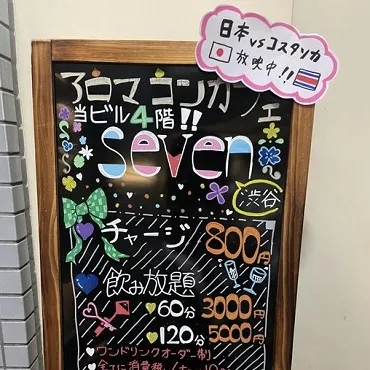 日本vsコスタリカ
放映中!!
アロマコンカフェ
当ビル4階!!
seven
渋谷
チャージ 800円
飲み放題
60分 3000円
120分 5000円
ワンドリンクオーダー制
全てに消費税